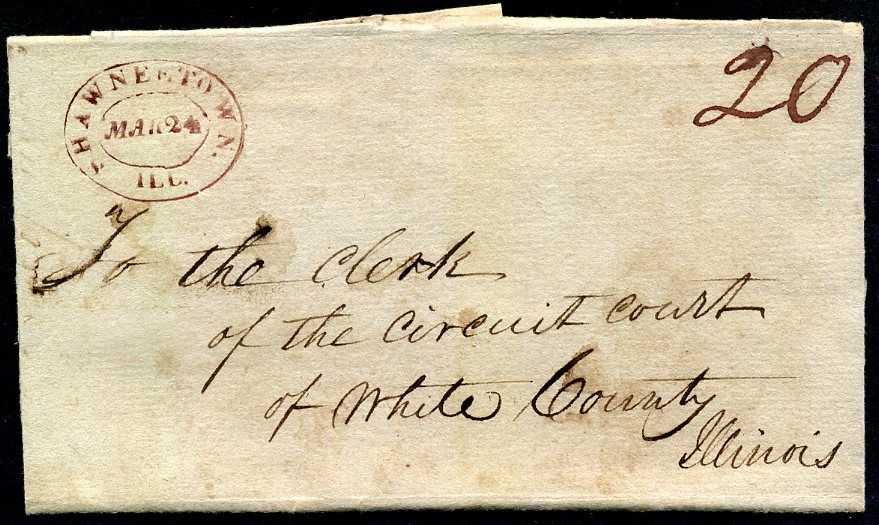 SHAWNEETOWN.
MAR 24
ILL.
20
To the clerk
of the circuit court
of White County
Illinois